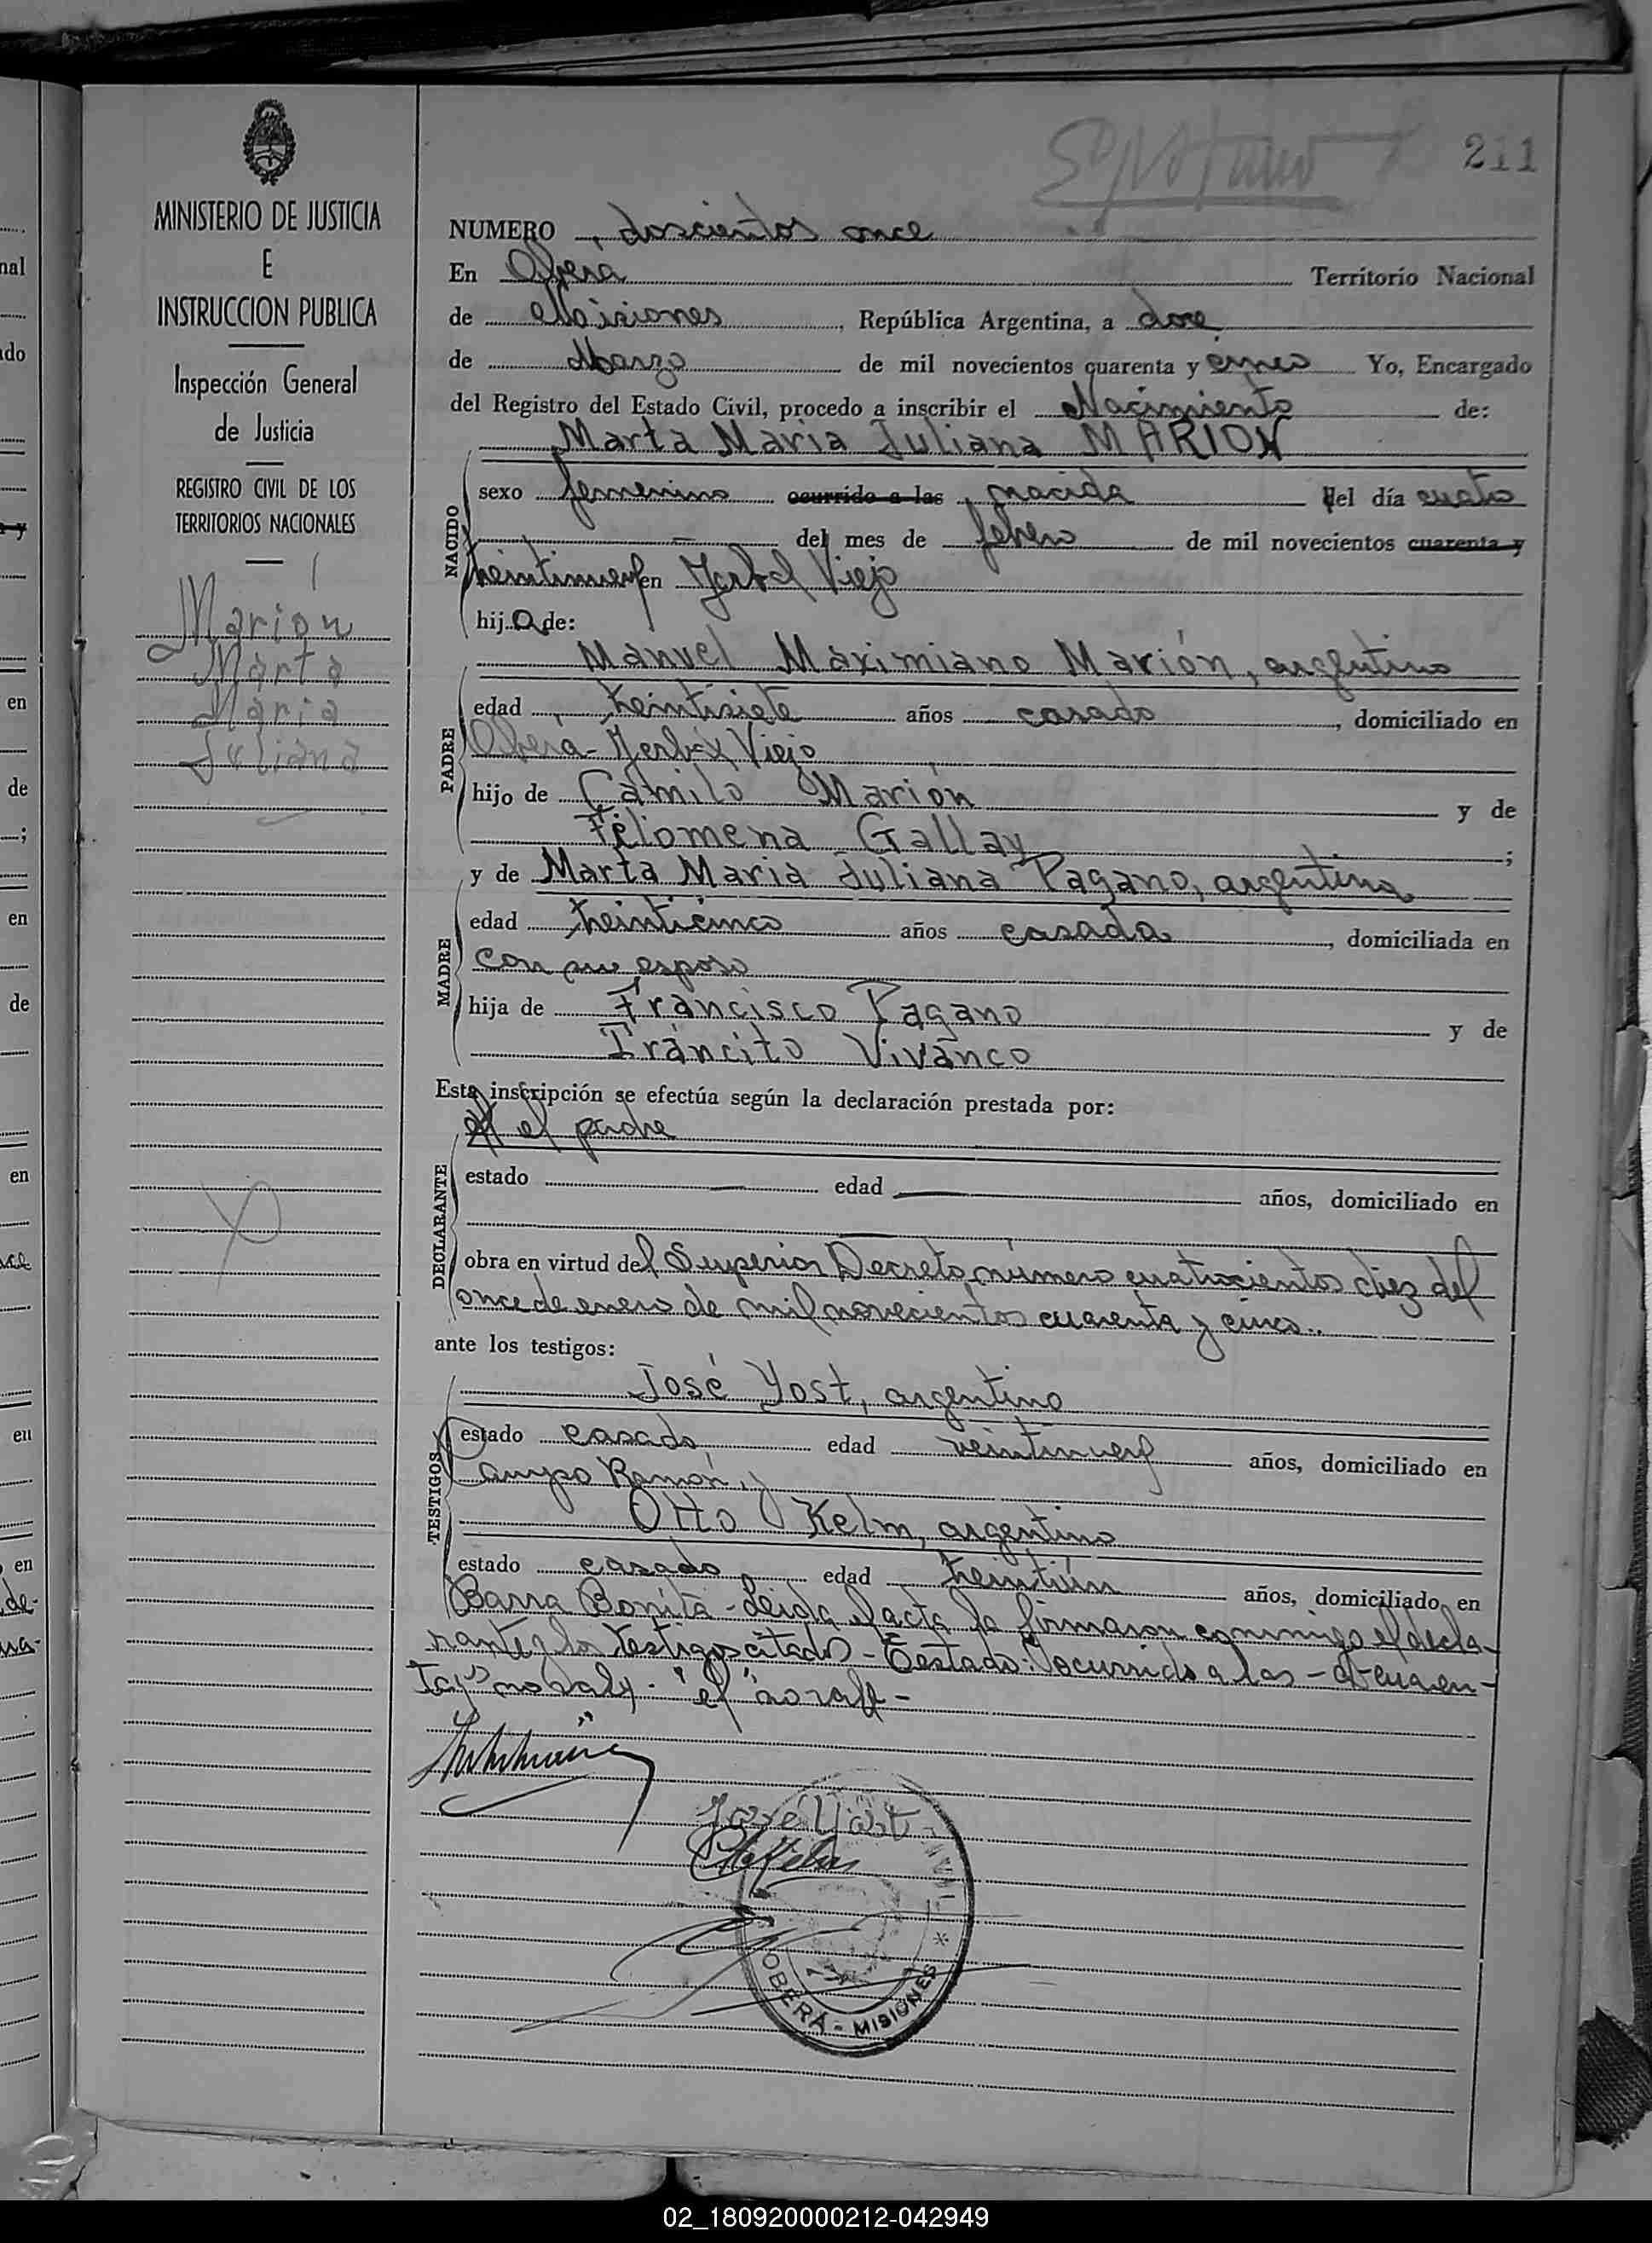 211
MINISTERIO DE JUSTICIA
E
INSTRUCCION PUBLICA
Inspección General
de Justicia
REGISTRO CIVIL DE LOS
TERRITORIOS NACIONALES
Marión
Marta
Maria
Juliana
NUMERO doscientos once
En Oberá Territorio Nacional
de Misiones, República Argentina, a doce
de Marzo de mil novecientos cuarenta y cinco Yo, Encargado
del Registro del Estado Civil, procedo a inscribir el Nacimiento de:
Marta Maria Juliana MARION
NACIDO
sexo femenino ocurrido a las, nacida el día cuatro
— del mes de febrero de mil novecientos cuarenta y
treintinueve en Yerbal Viejo
hija de:
Manuel Maximiano Marión, argentino
PADRE
edad treintisiete años casado, domiciliado en
Oberá - Yerbal Viejo
hijo de Camilo Marión y de
Filomena Gallay;
y de Marta Maria Juliana Pagano, argentina
MADRE
edad treinticinco años casada, domiciliada en
con su esposo
hija de Francisco Pagano y de
Tráncito Vivanco
Esta inscripción se efectúa según la declaración prestada por:
el padre
DECLARANTE
estado — edad — años, domiciliado en
obra en virtud del Superior Decreto número cuatrocientos diez del
once de enero de mil novecientos cuarenta y cinco..
ante los testigos:
José Yost, argentino
TESTIGOS
estado casado, edad veintinueve años, domiciliado en
Campo Ramón, y
Otto Kelm, argentino
estado casado edad treintiún años, domiciliado en
Barra Bonita - Leida el acta la firmaron conmigo el decla-
rante y los testigos citados - Testado: "ocurrido a las - cuaren-
ta y" no vale. "el" no vale -
José Yost
OBERÁ - MISIONES
02_180920000212-042949